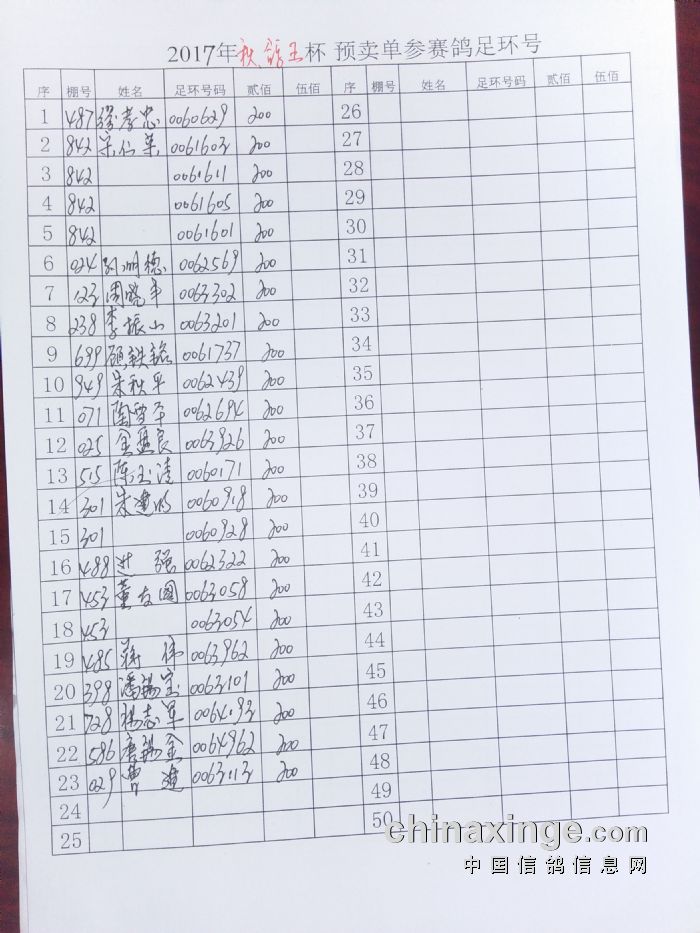 2017年秋鸽王杯 预卖单参赛鸽足环号
序 棚号 姓名 足环号码 贰佰 伍佰 序 棚号 姓名 足环号码 贰佰 伍佰
1 487 缪孝忠 0060629 200 26
2 842 宋仁荣 0061603 200 27
3 842 0061611 200 28
4 842 0061605 200 29
5 842 0061601 200 30
6 024 孙明德 0062569 200 31
7 123 周晓平 0063302 200 32
8 238 李振山 0063201 200 33
9 699 顾铁铭 0061737 200 34
10 949 朱秋平 0062439 200 35
11 071 陶雪平 0062694 200 36
12 025 金盘良 0063926 200 37
13 515 陈玉清 0060171 200 38
14 301 朱建明 0060918 200 39
15 301 0060928 200 40
16 488 进强 0062322 200 41
17 453 董友国 0063058 200 42
18 453 0063054 200 43
19 485 蒋伟 0063962 200 44
20 398 潘锡宝 0063101 200 45
21 728 杨志军 0064193 200 46
22 586 唐锡金 0064962 200 47
23 029 曹进 0063113 200 48
24 49
25 50
chinaxinge.com
中国信鸽信息网